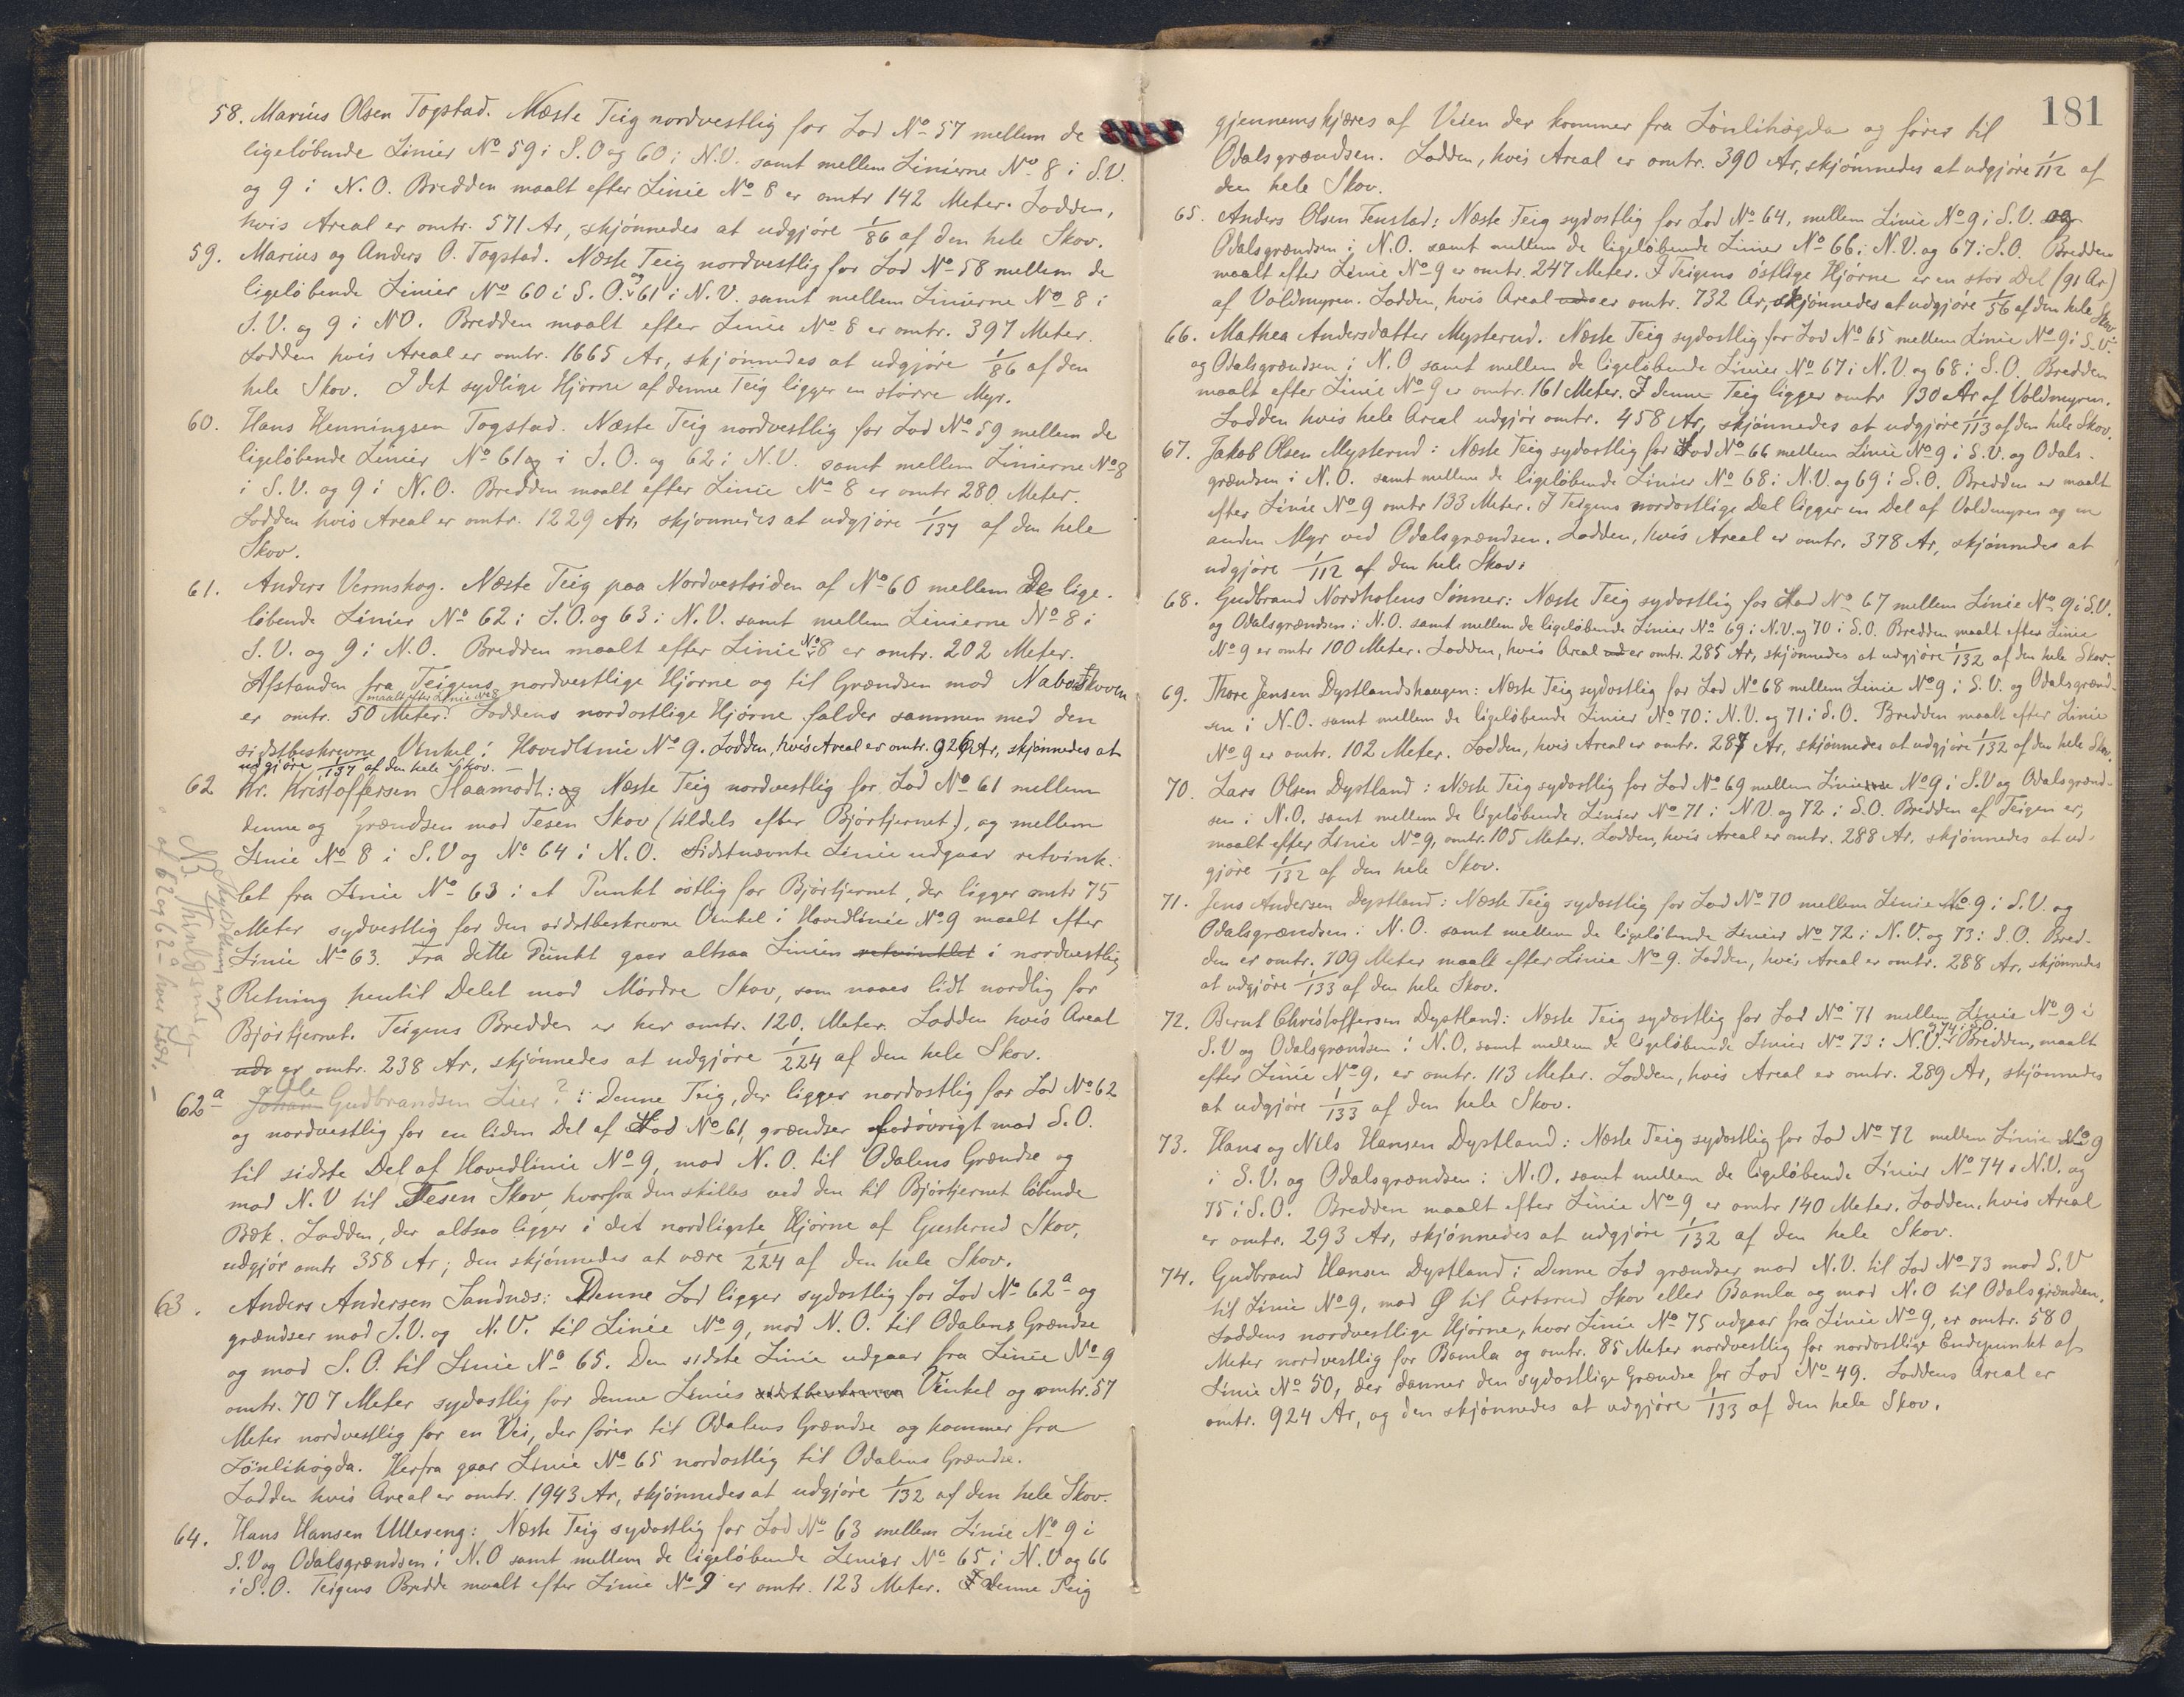 58. Marius Olsen Togstad. Næste Teig nordvestlig for Lod No 57 mellem de
ligeløbende Linier No 59 i S.O og 60 i N.V. samt mellem Linierne No 8 i S.V.
og 9 i N.O. Bredden maalt efter Linie No 8 er omtr 142 Meter. Lodden,
hvis Areal er omtr. 571 Ar, skjønnedes at udgjøre 1/86 af den hele Skov.
59. Marius og Anders O. Togstad. Næste Teig nordvestlig for Lod No 58 mellem de
ligeløbende Linier No 60 i S.O. og 61 i N.V. samt mellem Linierne No 8 i
S.V. og 9 i NO. Bredden maalt efter Linie No 8 er omtr. 397 Meter.
Lodden hvis Areal er omtr. 1665 Ar, skjønnedes at udgjøre 1/86 af den
hele Skov. I det sydlige Hjørne af denne Teig ligger en større Myr.
60. Hans Henningsen Togstad. Næste Teig nordvestlig for Lod No 59 mellem de
ligeløbende Linier No 61 og i S.O. og 62 i N.V. samt mellem Linierne No 8
i S.V. og 9 i N.O. Bredden maalt efter Linie No 8 er omtr 280 Meter.
Lodden hvis Areal er omtr. 1229 Ar, skjønnedes at udgjøre 1/137 af den hele
Skov.
61. Anders Vermskog. Næste Teig paa Nordvestsiden af No 60 mellem De lige-
løbende Linier No 62 i S.O. og 63 i N.V. samt mellem Linierne No 8 i
S.V. og 9 i N.O. Bredden maalt efter Linie No 8 er omtr. 202 Meter.
Afstanden fra Teigens nordvestlige Hjørne og til Grændsen mod Naboskoven
er omtr. 50 Meter maalt efter Linie No 8. Loddens nordostlige Hjørne falder sammen med den
sidstbeskrevne Vinkel i Hovedlinie No 9. Lodden, hvis Areal er omtr. 926 Ar, skjønnedes at
udgjøre 1/137 af den hele Skov. —
62 Kr. Kristoffersen Haamodt: og Næste Teig nordvestlig for Lod No 61 mellem
denne og Grændsen mod Tesen Skov (tildels efter Bjørtjernet), og mellem
Linie No 8 i S.V og No 64 i N.O. Sidstnævnte Linie udgaar retvink-
let fra Linie No 63 i et Punkt østlig for Bjørtjernet, der ligger omtr 75
Meter sydvestlig for den sidstbeskrevne Vinkel i Hovedlinie No 9 maalt efter
Linie No 63. Fra dette Punkt gaar altsaa Linien retvinklet i nordvestlig
Retning hentil Delet mod Mørdre Skov, som naaes lidt nordlig for
Bjørtjernet. Teigens Bredden er her omtr. 120 Meter. Lodden hvis Areal
udr er omtr. 238 Ar, skjønnedes at udgjøre 1/224 af den hele Skov.
62a Johan Ole Gudbrandsen Lier?: Denne Teig, der ligger nordostlig for Lod No 62
og nordvestlig for en liden Del af Lod No 61, grændser forøvrigt mod S.O.
til sidste Del af Hovedlinie No 9, mod N.O. til Odalens Grændse og
mod N.V til Tesen Skov, hvorfra den skilles ved den til Bjørtjernet løbende
Bæk. Lodden, der altsaa ligger i det nordligste Hjørne af Gusterud Skov,
udgjør omtr 358 Ar; den skjønnedes at være 1/224 af den hele Skov.
63. Anders Andersen Sandnæs: Denne Lod ligger sydostlig for Lod No 62a og
grændser mod S.V. og N.V. til Linie No 9, mod N.O. til Odalens Grændse
og mod S.O. til Linie No 65. Den sidste Linie udgaar fra Linie No 9
omtr. 707 Meter sydostlig for denne Linies sidstbeskrevne Vinkel og omtr. 57
Meter nordvestlig for en Vei, der fører til Odalens Grændse og kommer fra
Lønlihøgda. Herfra gaar Linie No 65 nordostlig til Odalens Grændse.
Lodden hvis Areal er omtr. 1943 Ar, skjønnedes at udgjøre 1/132 af den hele Skov.
64. Hans Hansen Ullereng: Næste Teig sydostlig for Lod No 63 mellem Linie No 9 i
S.V og Odalsgrændsen i N.O samt mellem de ligeløbende Linier No 65 i N.V og 66
i S.O. Teigens Bredde maalt efter Linie No 9 er omtr. 123 Meter. I denne Teig
NB
af 62 og 62a hver især. —
181
gjennemskjæres af Veien der kommer fra Lønlihøgda og fører til
Odalsgrændsen. Lodden, hvis Areal er omtr. 390 Ar, skjønnedes at udgjøre 1/112 af
den hele Skov.
65. Anders Olsen Tenstad: Næste Teig sydostlig for Lod No 64, mellem Linie No 9 i S.V. og
Odalsgrændsen i N.O. samt mellem de ligeløbende Linier No 66 i N.V. og 67 i S.O. Bredden
maalt efter Linie No 9 er omtr. 247 Meter. I Teigens østlige Hjørne er en stor Del (91 Ar)
af Voldmyren. Lodden, hvis Areal udr er omtr. 732 Ar, skjønnedes at udgjøre 1/56 af den hele Skov.
66. Mathea Andersdatter Mysterud. Næste Teig sydostlig for Lod No 65 mellem Linie No 9 i S.V.
og Odalsgrændsen i N.O samt mellem de ligeløbende Linier No 67 i N.V. og 68 i S.O. Bredden
maalt efter Linie No 9 er omtr. 161 Meter. I denne Teig ligger omtr 130 Ar af Voldmyren.
Lodden hvis hele Areal udgjør omtr. 458 Ar, skjønnedes at udgjøre 1/113 af den hele Skov.
67. Jakob Olsen Mysterud: Næste Teig sydostlig for Lod No 66 mellem Linie No 9 i S.V. og Odals-
grændsen i N.O. samt mellem de ligeløbende Linier No 68 i N.V. og 69 i S.O. Bredden er maalt
efter Linie No 9 omtr 133 Meter. I Teigens nordostlige Del ligger en Del af Voldmyren og en
anden Myr ved Odalsgrændsen. Lodden, hvis Areal er omtr. 378 Ar, skjønnedes at
udgjøre 1/112 af den hele Skov.
68. Gudbrand Nordholens Sønner: Næste Teig sydostlig for Lod No 67 mellem Linie No 9 i S.V.
og Odalsgrændsen i N.O. samt mellem de ligeløbende Linier No 69 i N.V. og 70 i S.O. Bredden maalt efter Linie
No 9 er omtr 100 Meter. Lodden, hvis Areal ud er omtr. 285 Ar, skjønnedes at udgjøre 1/132 af den hele Skov.
69. Thore Jensen Dystlandshaugen: Næste Teig sydostlig for Lod No 68 mellem Linie No 9 i S.V. og Odalsgrænd-
sen i N.O. samt mellem de ligeløbende Linier No 70 i N.V. og 71 i S.O. Bredden maalt efter Linie
No 9 er omtr. 102 Meter. Lodden, hvis Areal er omtr. 287 Ar, skjønnedes at udgjøre 1/132 af den hele Skov.
70. Lars Olsen Dystland: Næste Teig sydostlig for Lod No 69 mellem Linierne No 9 i S.V og Odalsgrænd-
sen i N.O. samt mellem de ligeløbende Linier No 71 i N.V. og 72 i S.O. Bredden af Teigen er,
maalt efter Linie No 9, omtr. 105 Meter. Lodden, hvis Areal er omtr. 288 Ar, skjønnedes at ud-
gjøre 1/132 af den hele Skov.
71. Jens Andersen Dystland: Næste Teig sydostlig for Lod No 70 mellem Linie No 9 i S.V. og
Odalsgrændsen i N.O. samt mellem de ligeløbende Linier No 72 i N.V. og 73 i S.O. Bred-
den er omtr. 109 Meter maalt efter Linie No 9. Lodden, hvis Areal er omtr. 288 Ar, skjønnedes
at udgjøre 1/133 af den hele Skov.
72. Bernt Christoffersen Dystland: Næste Teig sydostlig for Lod No 71 mellem Linie No 9 i
S.V og Odalsgrændsen i N.O, samt mellem de ligeløbende Linier No 73 i N.V. og 74 i S.O. Bredden, maalt
efter Linie No 9, er omtr. 113 Meter. Lodden, hvis Areal er omtr. 289 Ar, skjønnedes
at udgjøre 1/133 af den hele Skov.
73. Hans og Nils Hansen Dystland: Næste Teig sydostlig for Lod No 72 mellem Linie No 9
i S.V. og Odalsgrændsen i N.O. samt mellem de ligeløbende Linier No 74 i N.V. og
75 i S.O. Bredden maalt efter Linie No 9 er omtr 140 Meter. Lodden, hvis Areal
er omtr. 293 Ar, skjønnedes at udgjøre 1/132 af den hele Skov.
74. Gudbrand Hansen Dystland: Denne Lod grændser mod N.V. til Lod No 73 mod S.V
til Linie No 9, mod Ø til Ertsrud Skov eller Bamla og mod N.O til Odalsgrændsen.
Loddens nordvestlige Hjørne, hvor Linie No 75 udgaar fra Linie No 9, er omtr. 580
Meter nordvestlig for Bamla og omtr. 85 Meter nordvestlig for nordostlige Endepunkt af
Linie No 50, der danner den sydostlige Grændse for Lod No 49. Loddens Areal er
omtr. 924 Ar, og den skjønnedes at udgjøre 1/133 af den hele Skov.